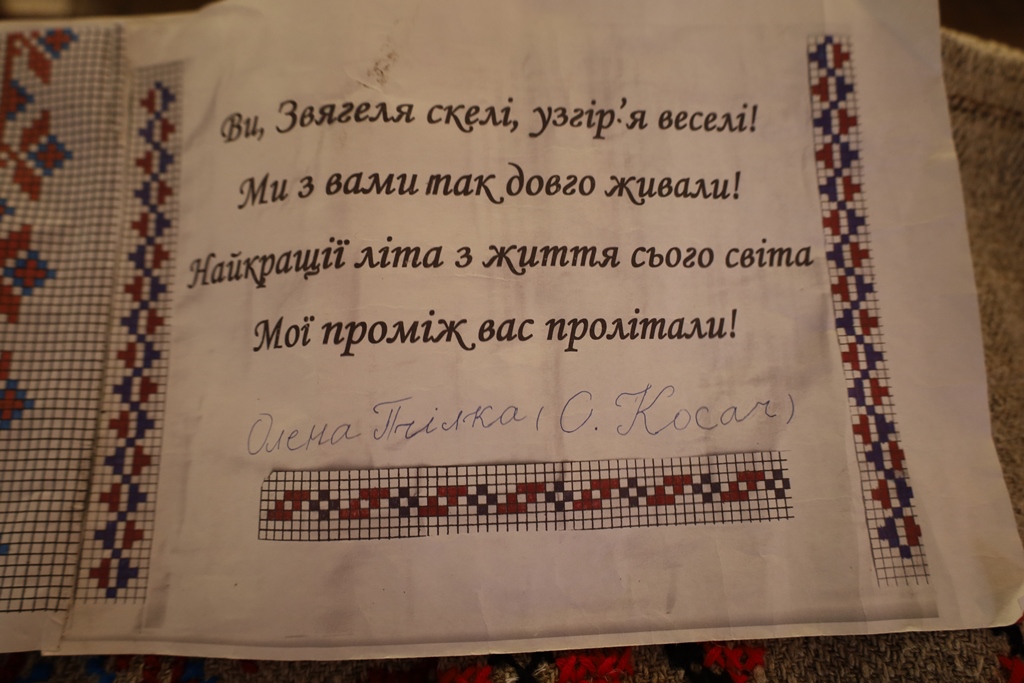 Ви, Звягеля скелі, узгір'я веселі!
Ми з вами так довго живали!
Найкращії літа з життя сього світа
Мої проміж вас пролітали!
Олена Пчілка (О. Косач)